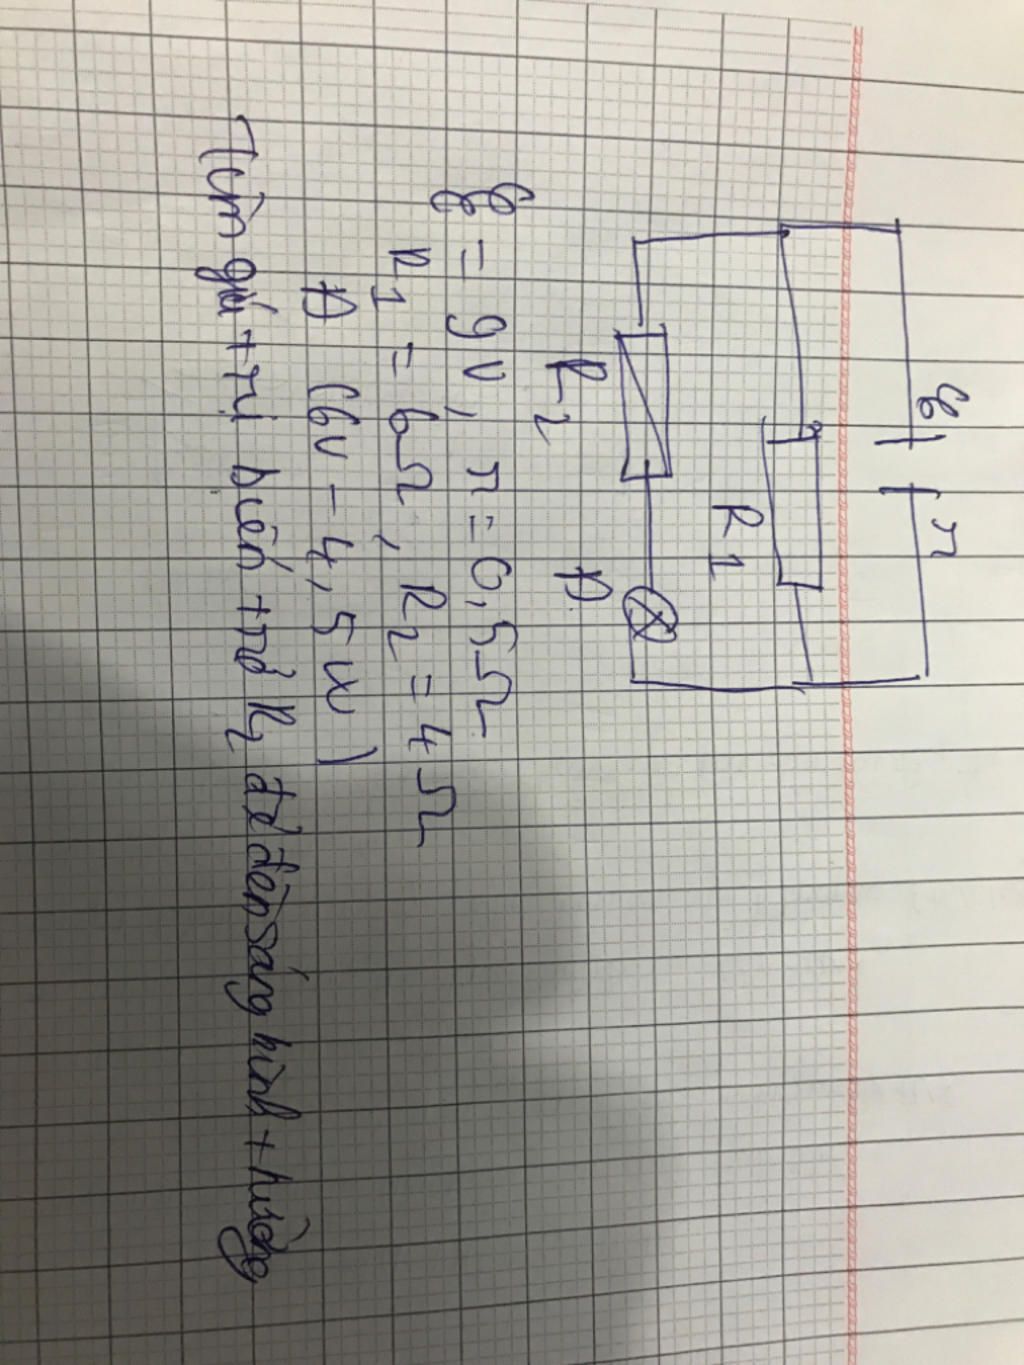 ℰ r
R1
R2 Đ
ℰ = 9V, r = 0,5Ω
R1 = 6Ω, R2 = 4Ω
Đ (6V - 4,5W)
Tìm giá trị biến trở R2 để đèn sáng bình thường